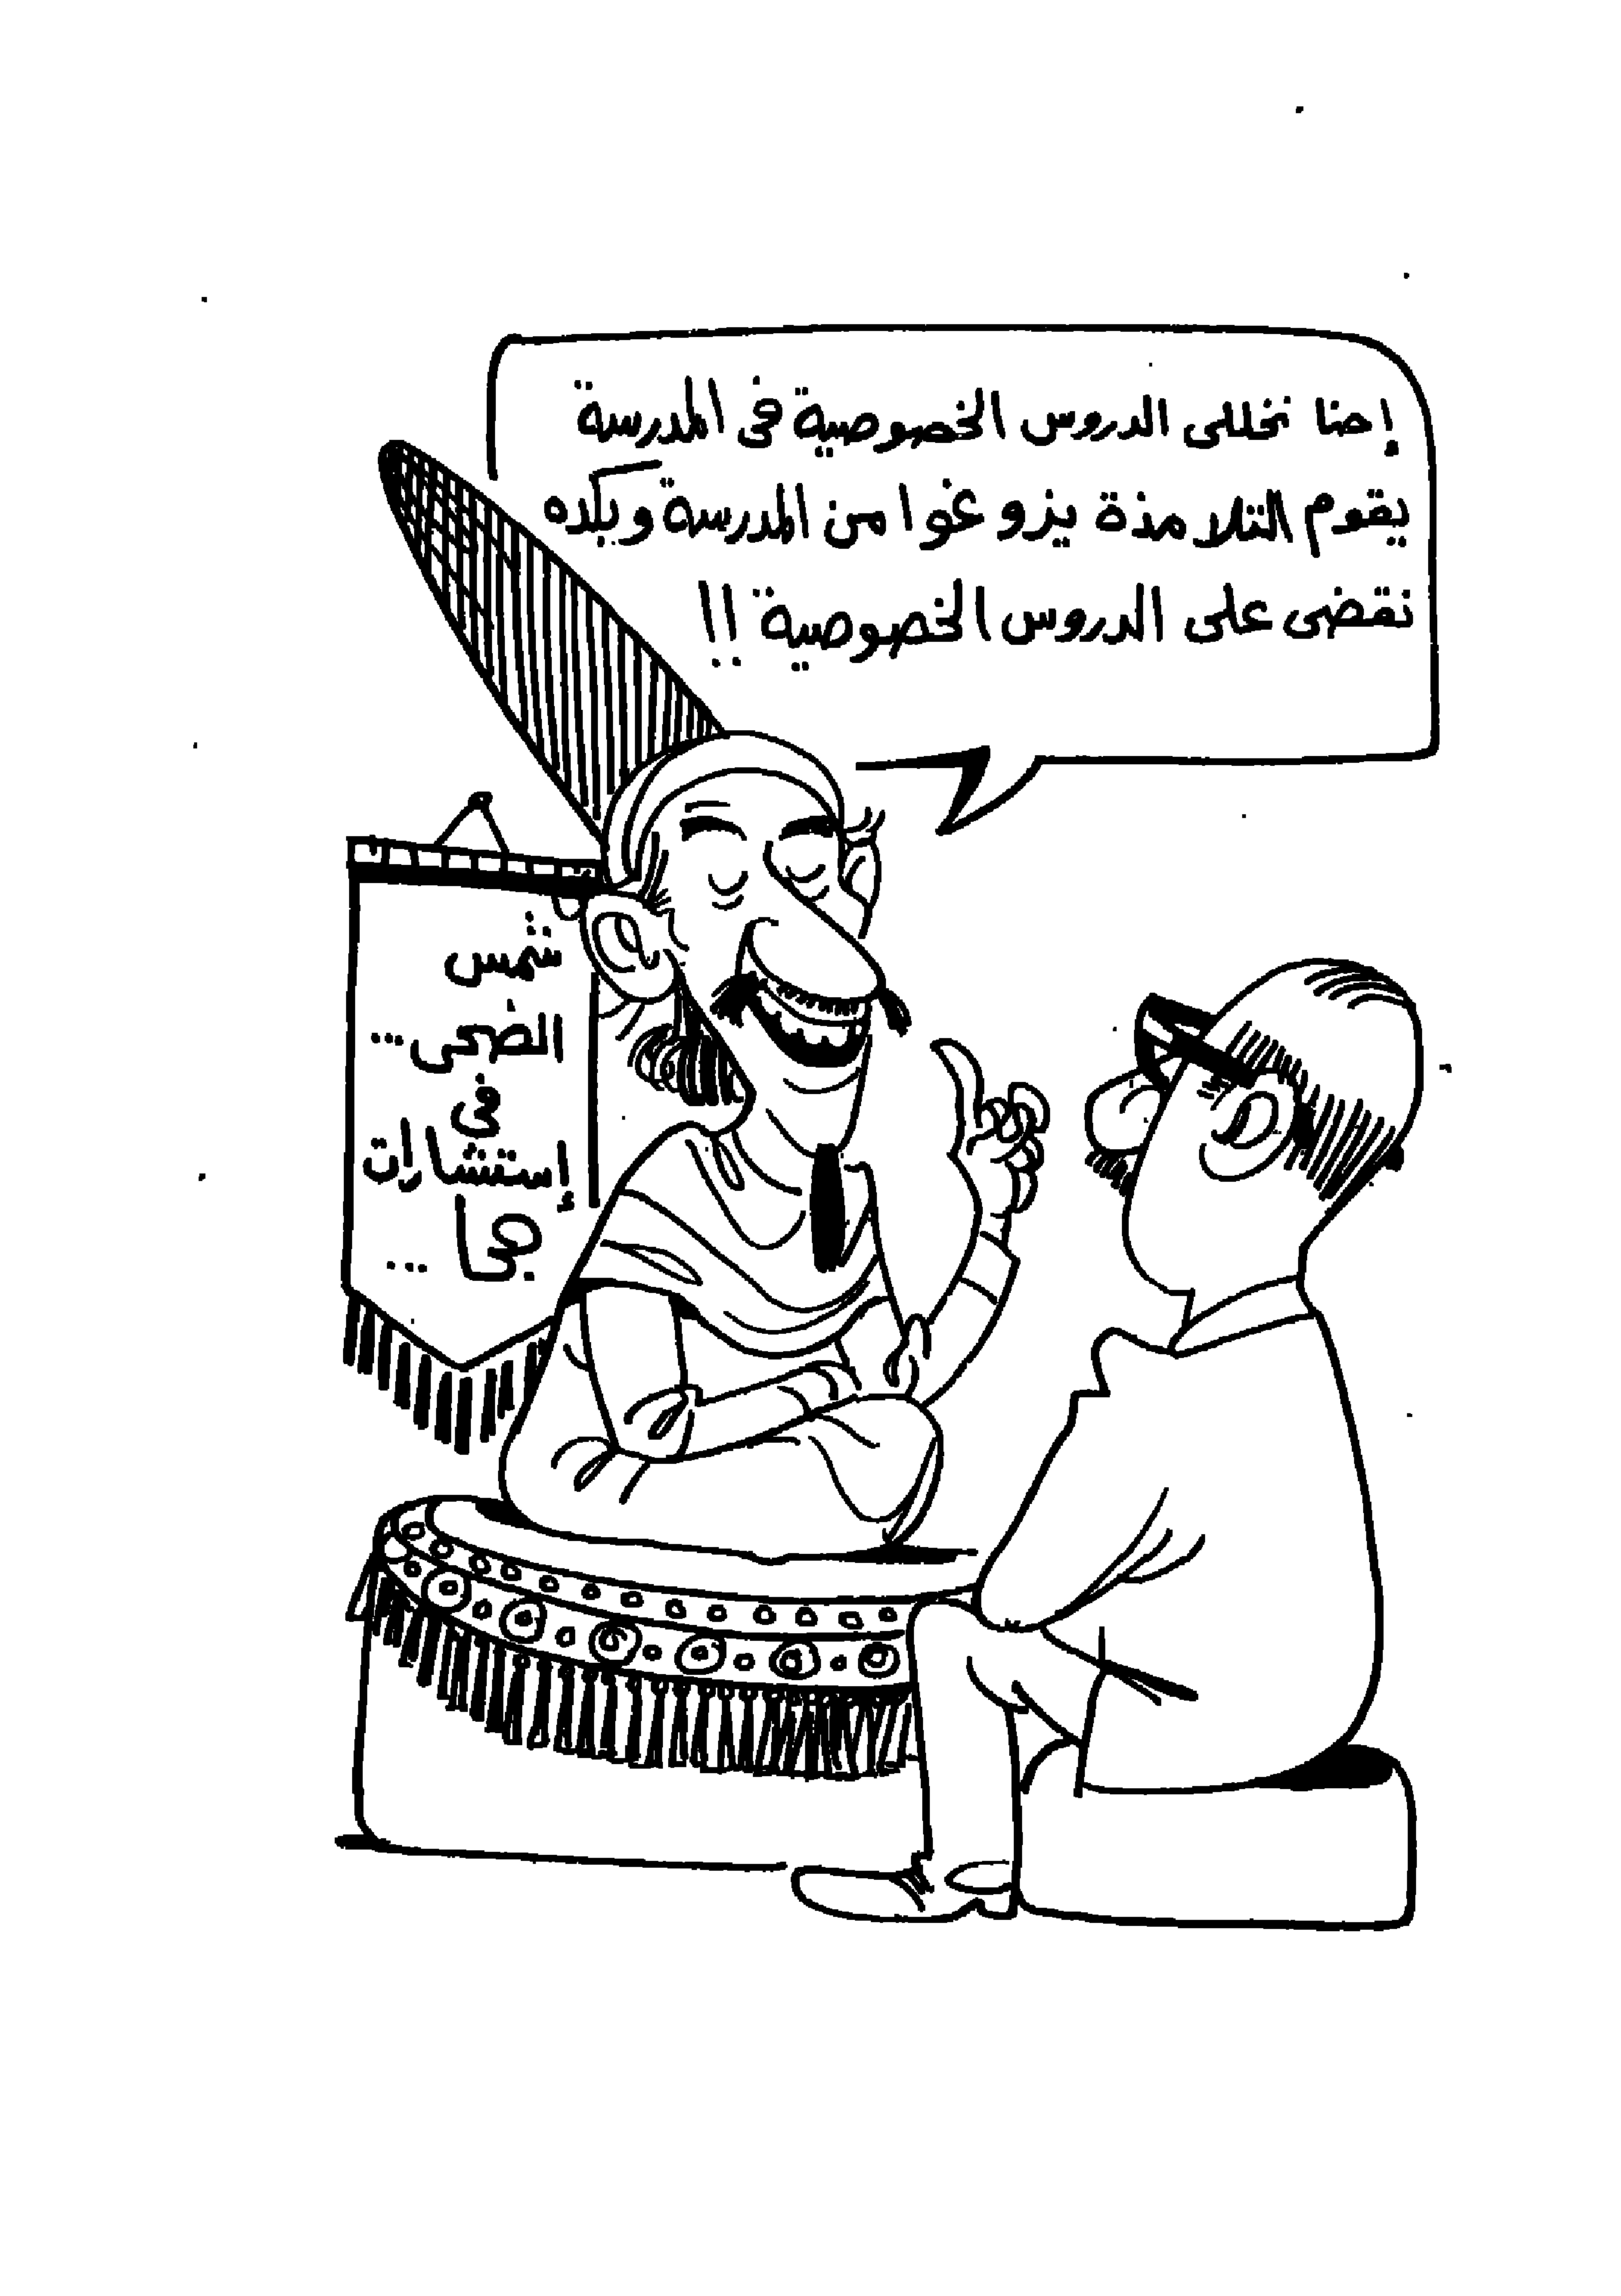 إحنا نخللى الدروس الخصوصية فى المدرسة
يقوم التلامذة يزوغوا من المدرسة وبكده
نقضى على الدروس الخصوصية !!
شمس
الضحى ...
فى
إستشارات
جحا ...